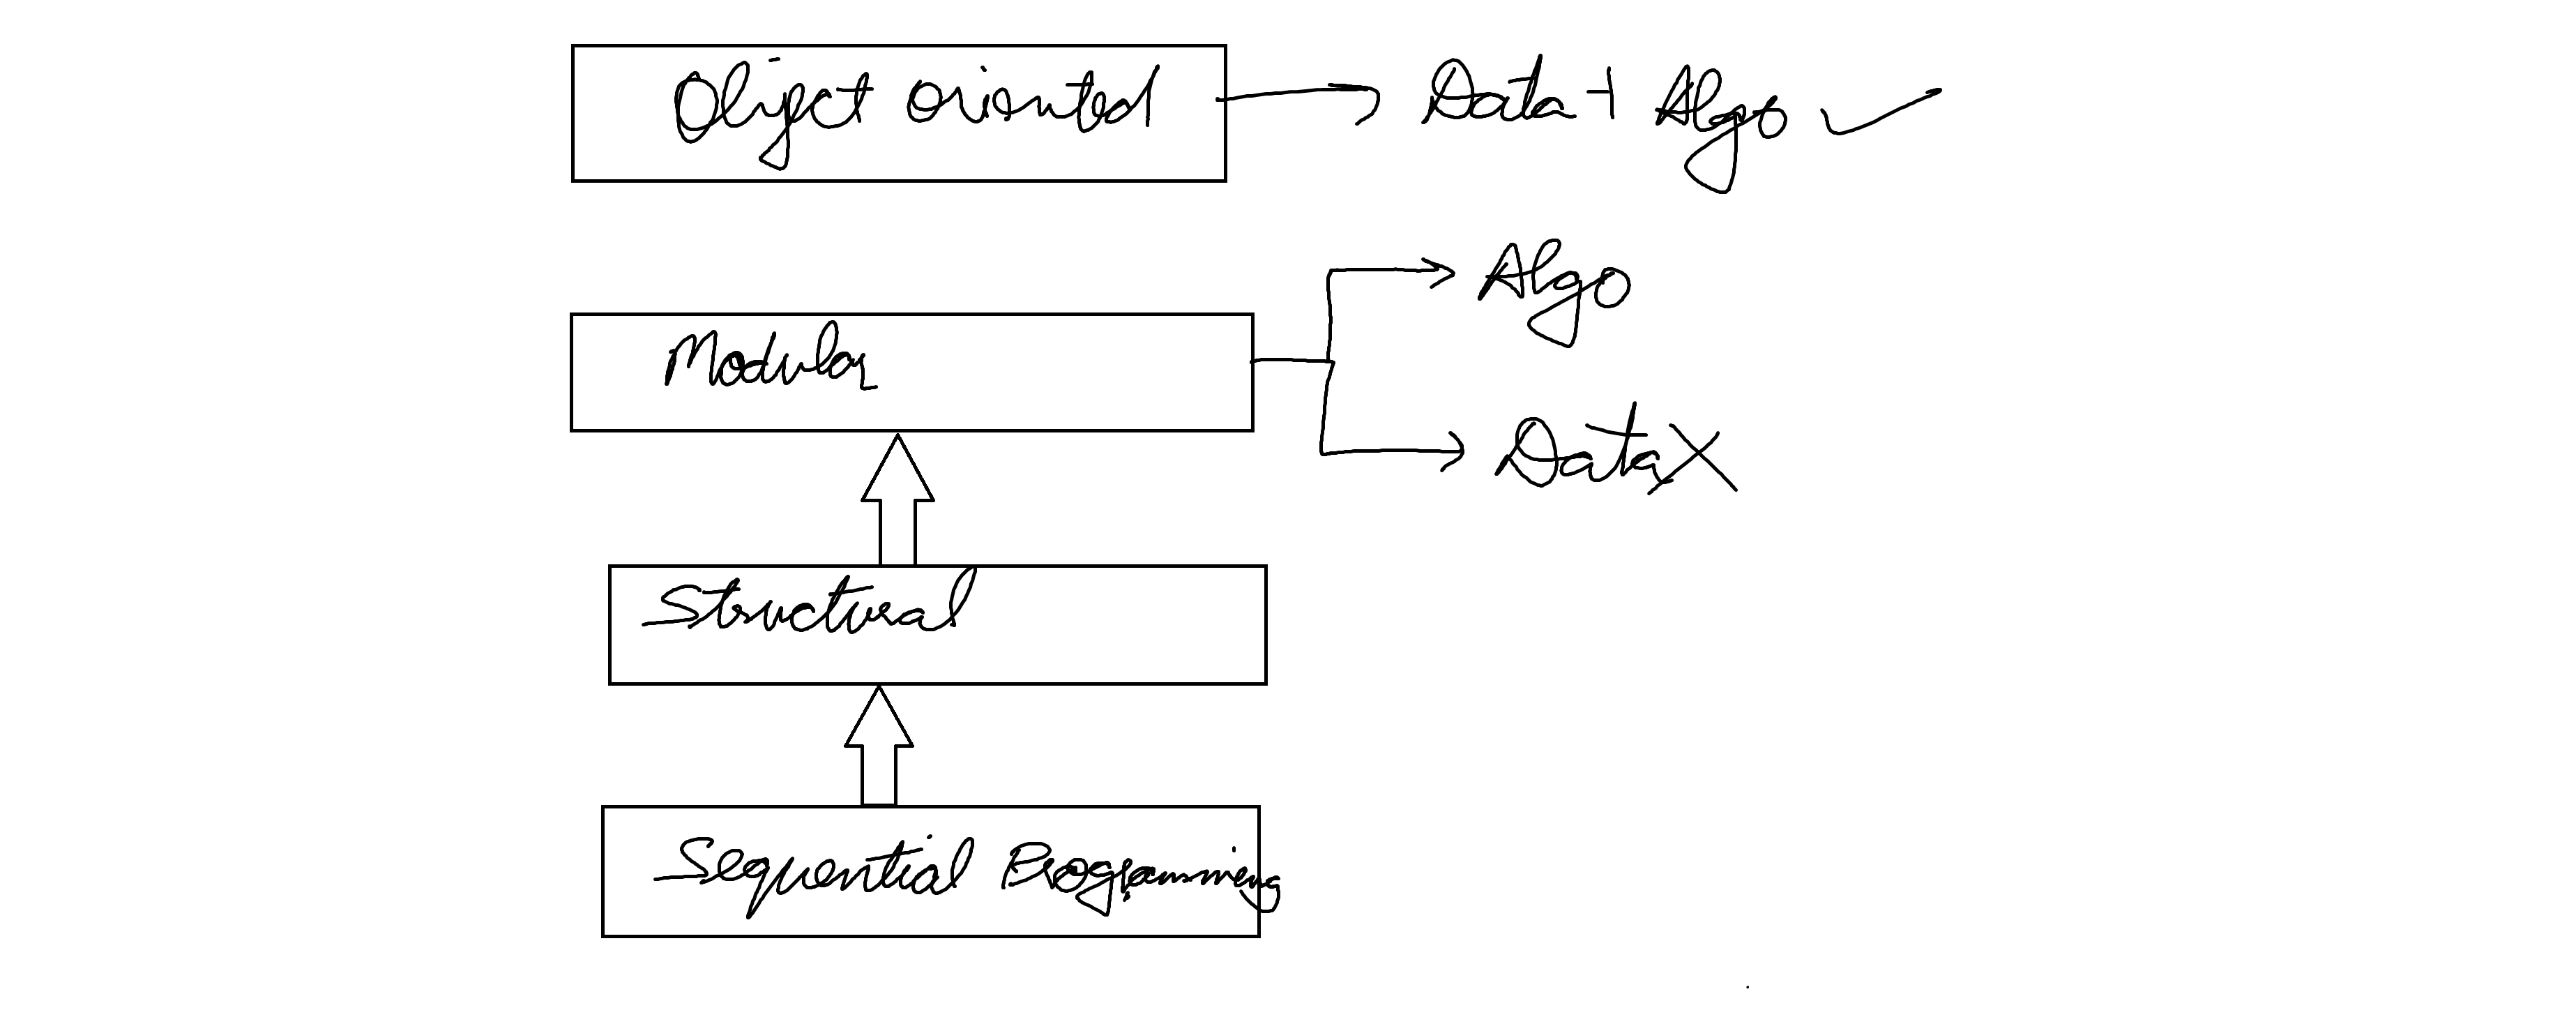 Object oriented
Data + Algo ✓
Algo
Modular
Data X
Structural
Sequential Programming